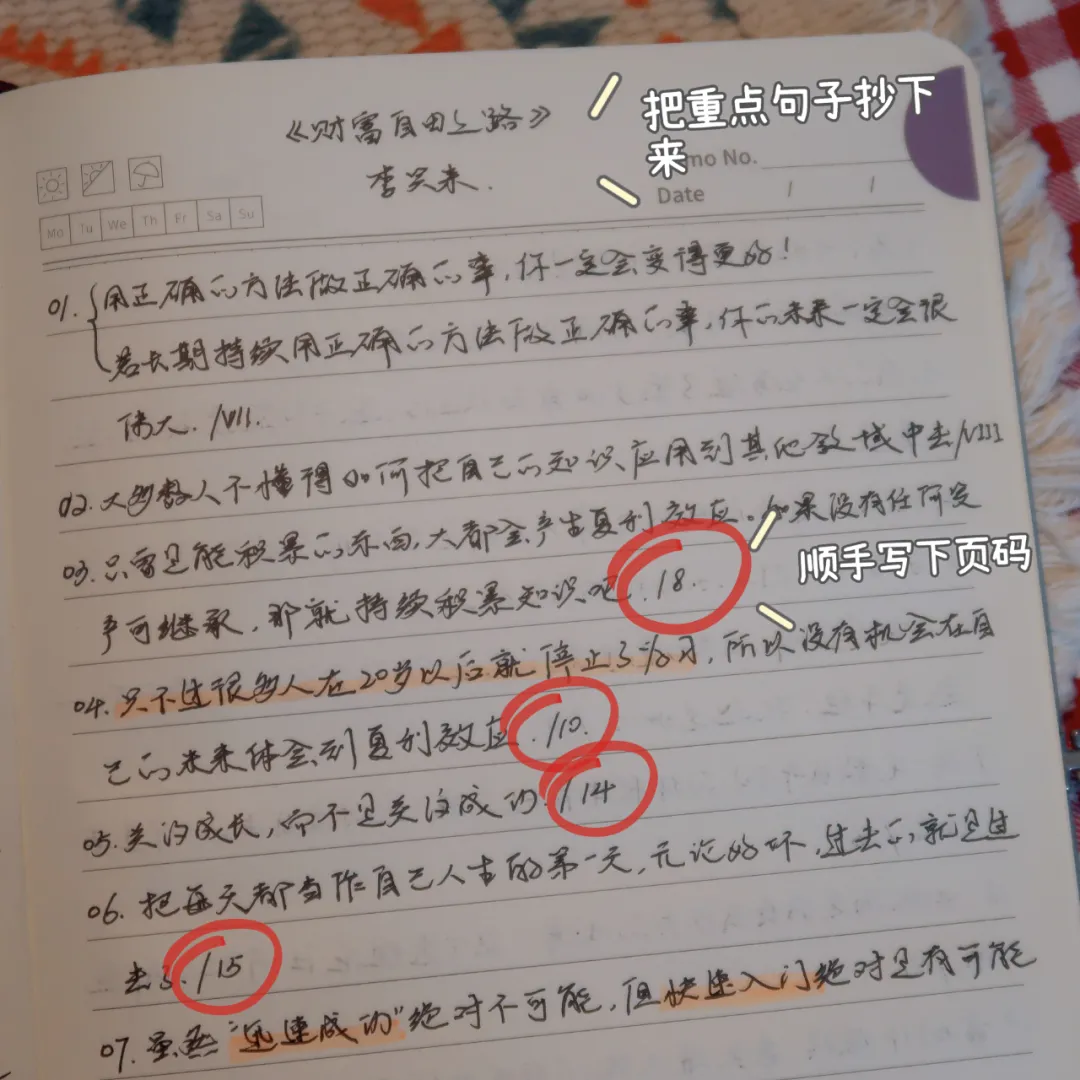 《财富自由之路》
李笑来.
把重点句子抄下
来
Memo No.
Date / /
Mo Tu We Th Fr Sa Su
01. 用正确的方法做正确的事,你一定会变得更好!
若长期持续用正确的方法做正确的事,你的未来一定会很
伟大./VII.
02. 大多数人不懂得如何把自己的知识应用到其他领域中去/VIII
03. 只要是能积累的东西,大都会产生复利效应。如果没有任何资
产可继承,那就持续积累知识吧./8.
顺手写下页码
04. 只不过很多人在20岁以后就停止了学习,所以没有机会在自
己的未来体会到复利效应./10.
05. 关注成长,而不是关注成功./14
06. 把每天都当作自己人生的第一天,无论好坏,过去的就是过
去了./15
07. 虽然“迅速成功”绝对不可能,但快速入门绝对是有可能